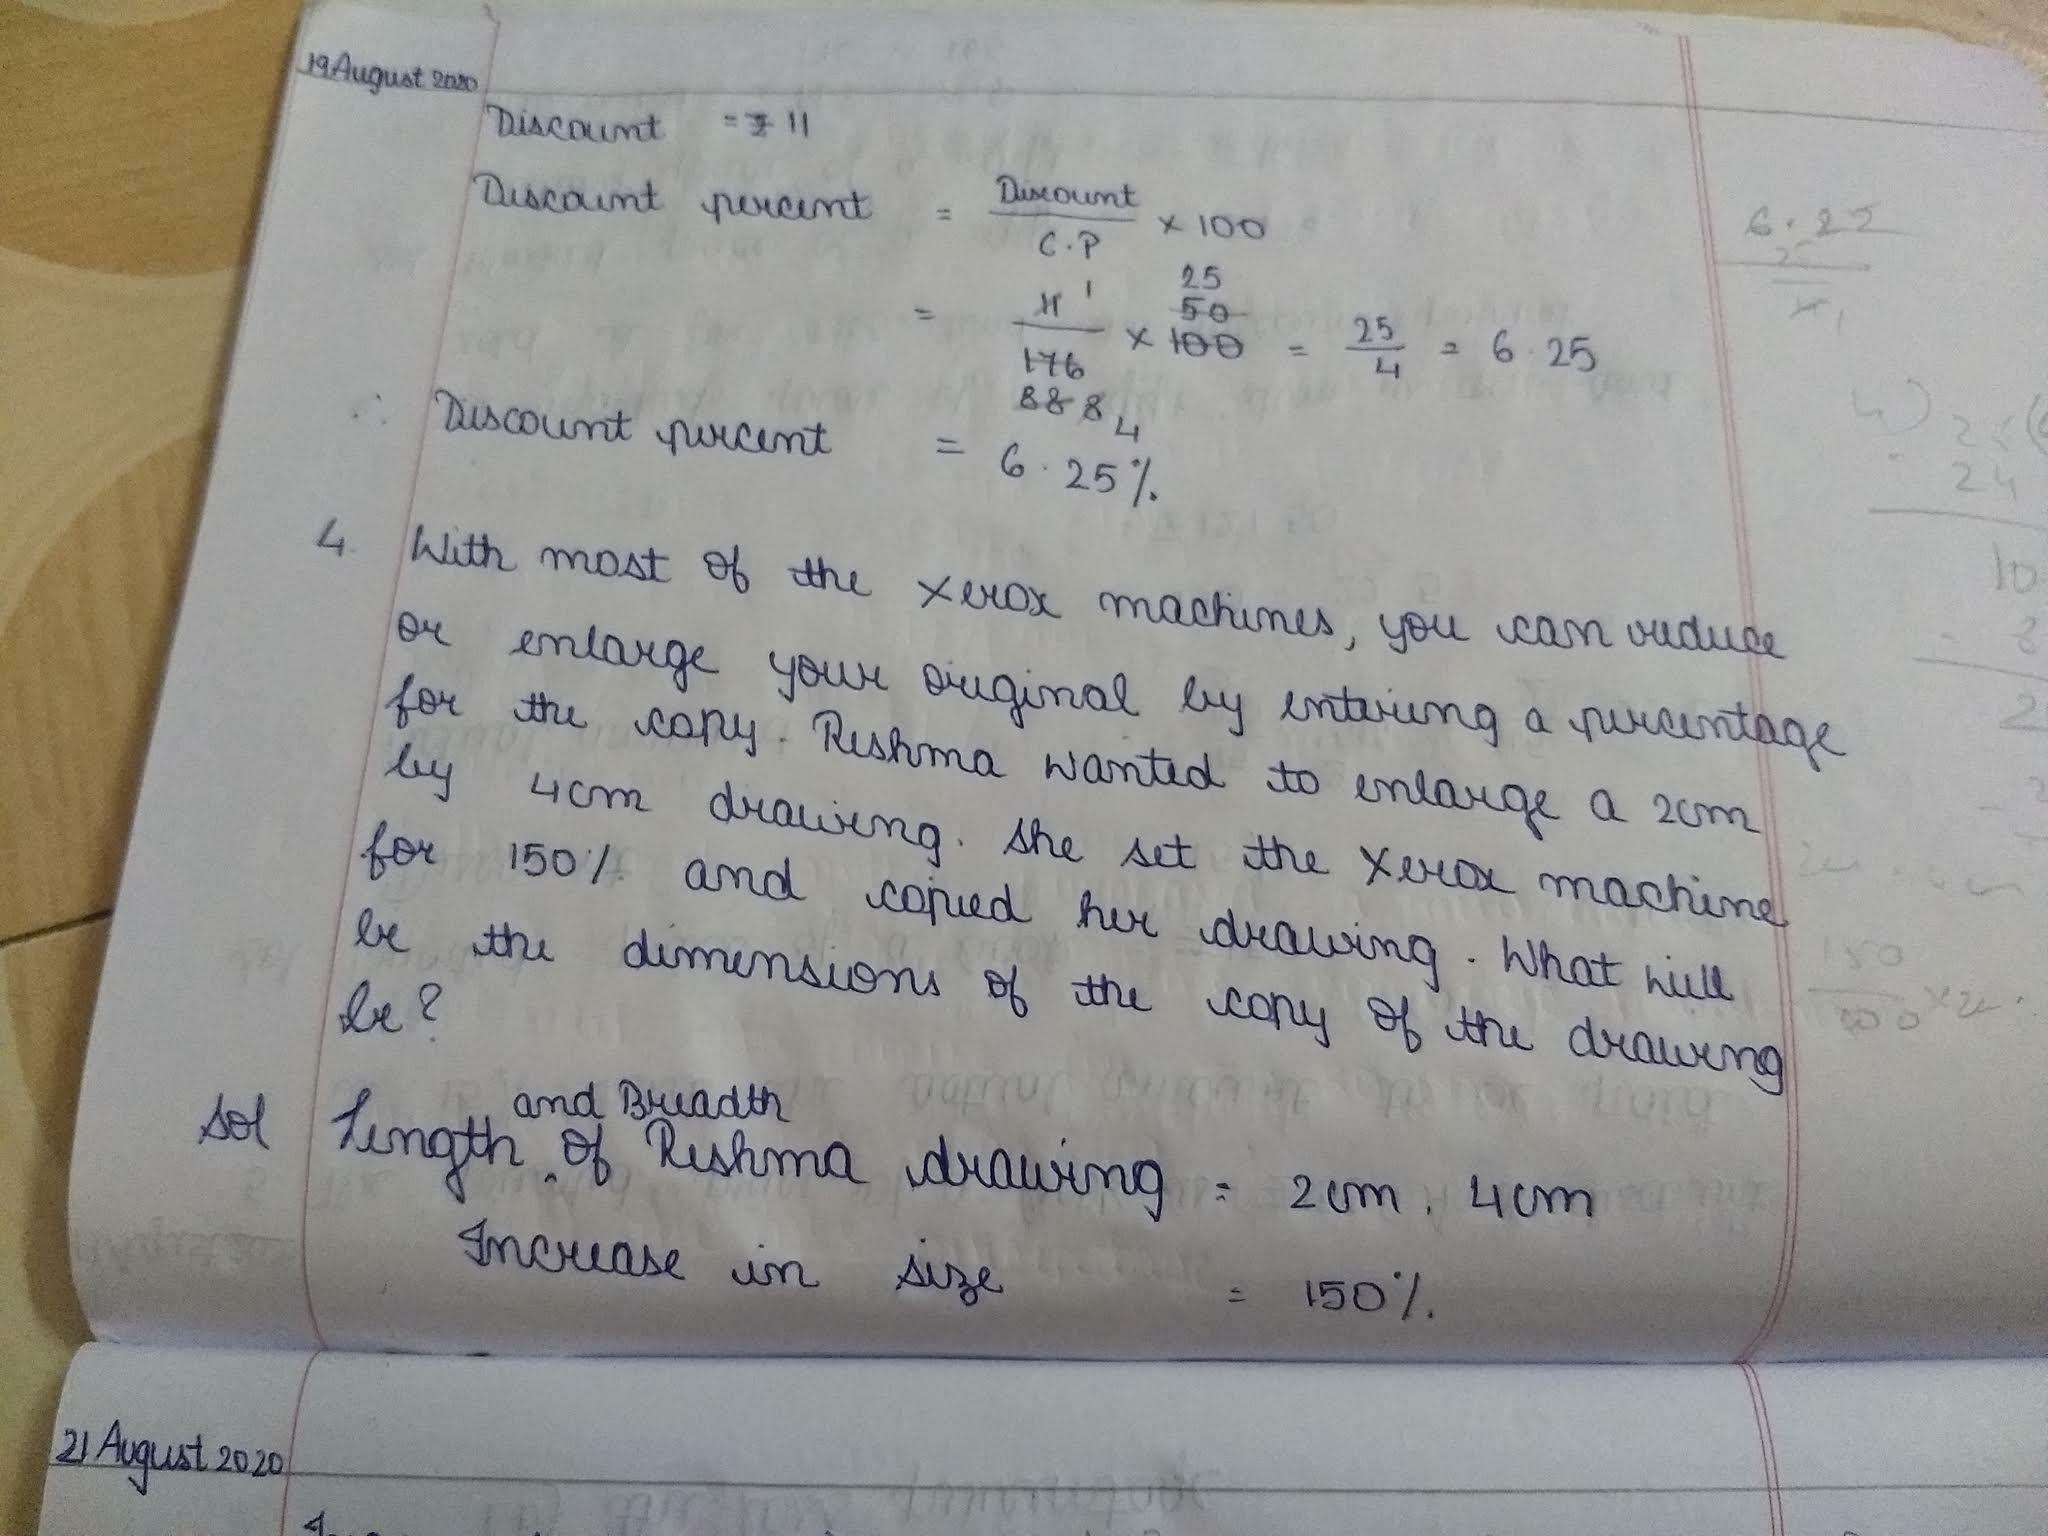 19 August 2020
Discount = ₹ 11
Discount percent = Discount / C.P × 100
= 11 1 / 176 88 8 4 × 100 50 25 = 25/4 = 6.25
∴ Discount percent = 6.25%
4. With most of the Xerox machines, you can reduce
or enlarge your original by entering a percentage
for the copy. Reshma wanted to enlarge a 2cm
by 4cm drawing. She set the Xerox machine
for 150% and copied her drawing. What will
be the dimensions of the copy of the drawing
be?
Sol Length and Breadth of Reshma drawing = 2cm, 4cm
Increase in size = 150%.
21 August 2020
6.25
4) 25 (
24
10
150/100 ×